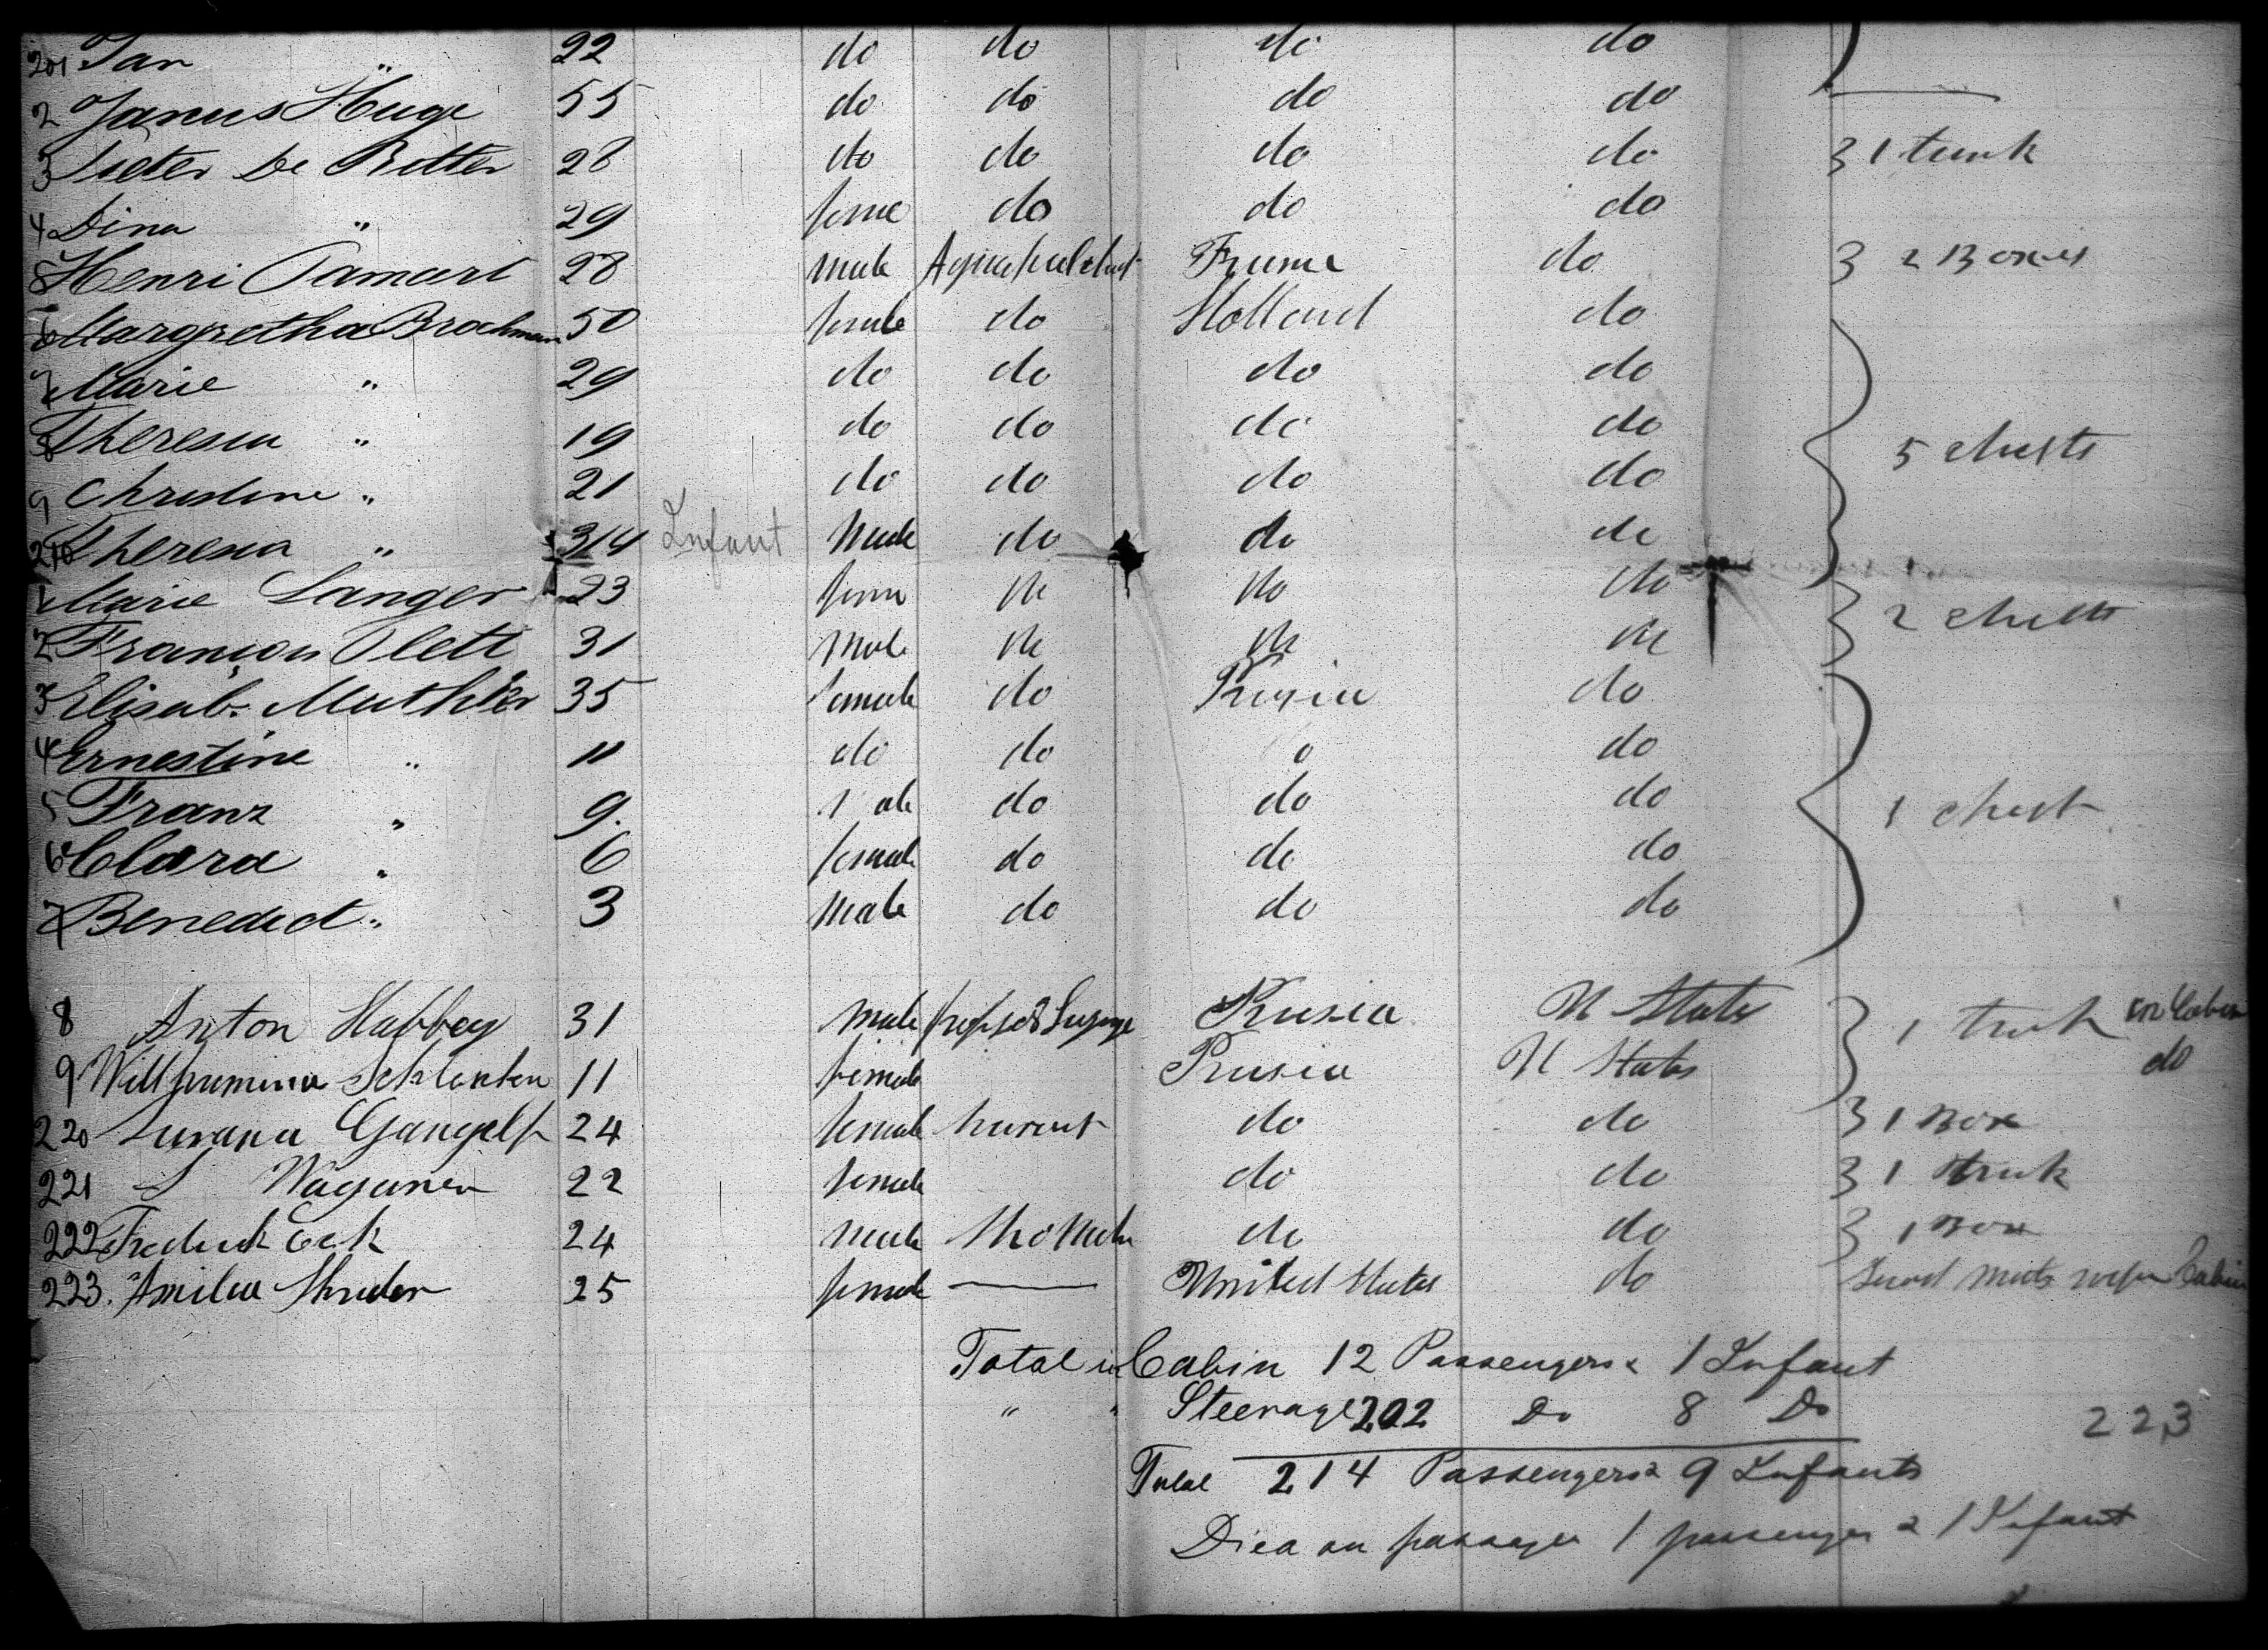 201 Jan " 22 do do do do
2 Janus Huge 55 do do do do
3 Pieter De Ritter 28 do do do do 3 1 trunk
4 Dina " 29 feme do do do
5 Henri Tamart 28 male do 3 2 Boxes
6 Margretha Brachman 50 female do Holland do
7 Marie " 29 do do do do
8 Theresia " 19 do do do do
9 Christine " 21 do do do do 5 chests
210 Theresia " 3/4 Infant Male do do do
1 Marie Langer 23 feme do do do
2 Plett 31 Male do do do 2 chests
3 Elisab. 35 Female do Prusia do
4 Ernestine " 11 do do o do
5 Franz " 9. ale do do do
6 Clara " 6 female do do do 1 chest
7 Benedict " 3 Male do do do
8 Anton Habbey 31 male Prusia U States 1 trunk in Cabin
9 11 female Prusia U States do
220 24 female do do 3 1 Box
221 22 female do do 3 1 trunk
222 24 male do do 3 1 Box
223. 25 female — United States do Cabin
Total in Cabin 12 Passengers & 1 Infant
" " Steerage 202 Do 8 Do
223
Total 214 Passengers & 9 Infants
Died on passage 1 passenger & 1 Infant